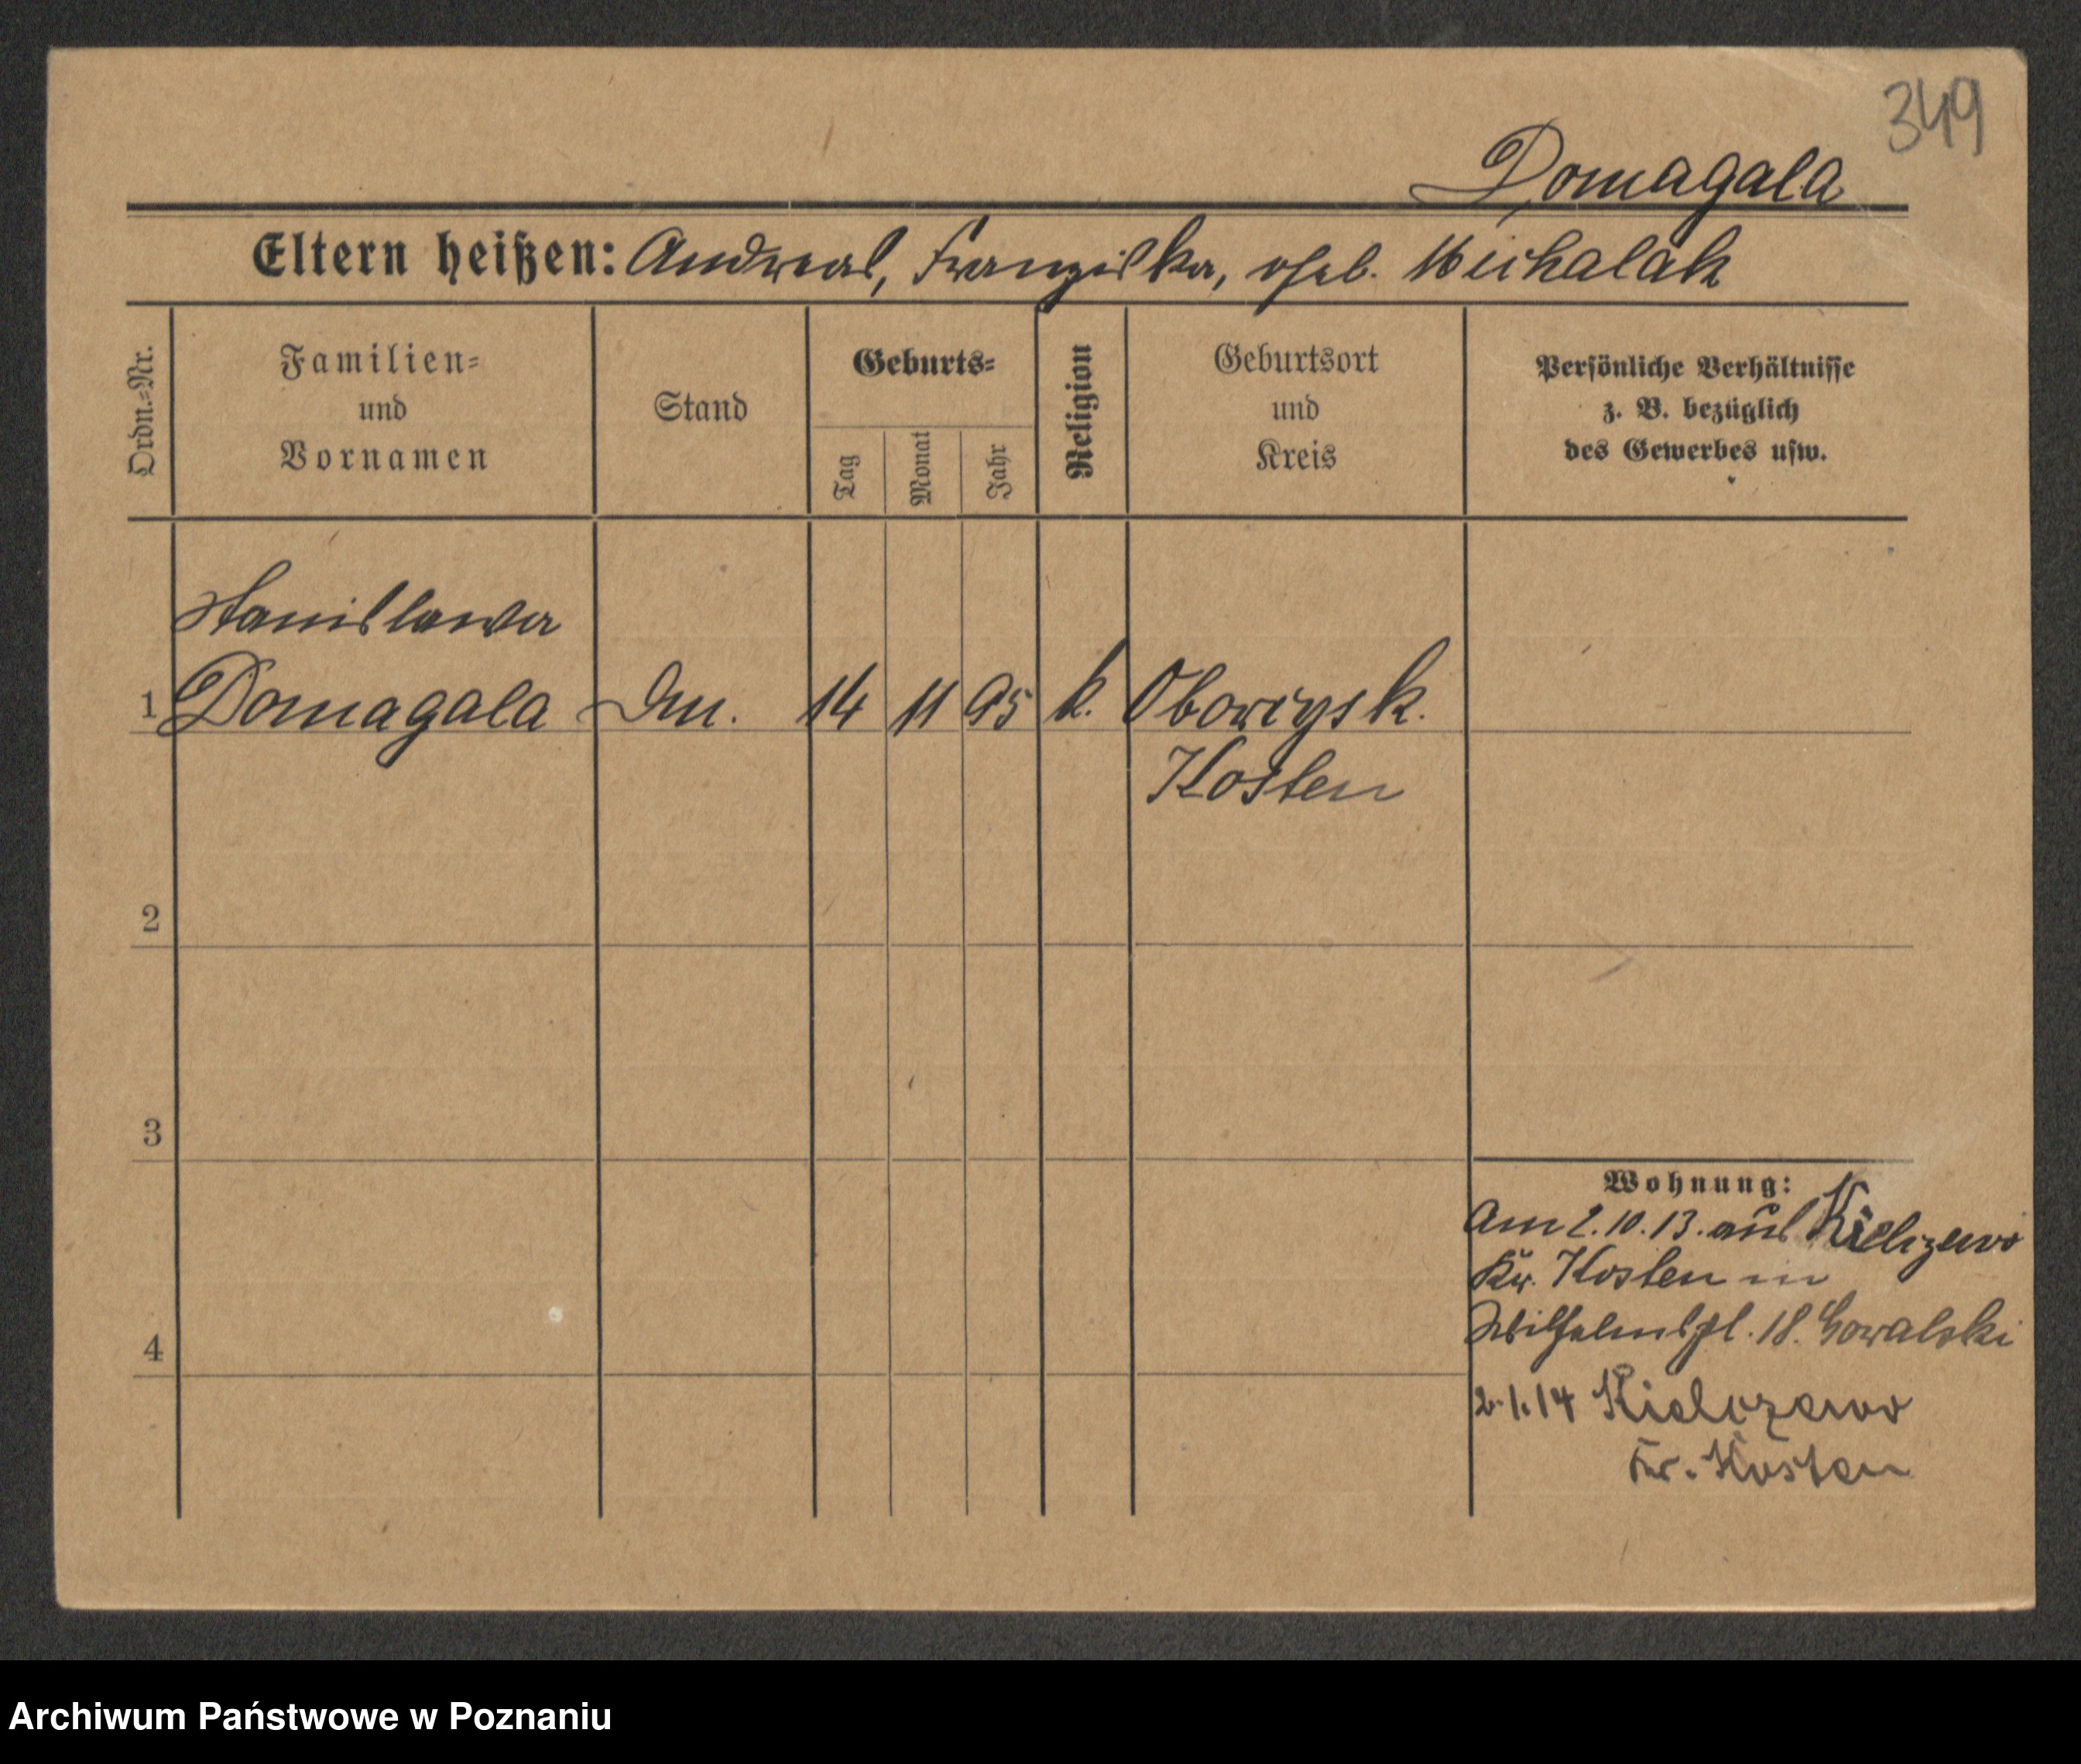 349
Domagala
Eltern heißen: Andreas, Franziska, geb. Michalak
Ordn.-Nr.
Familien-
und
Vornamen
Stand
Geburts-
Tag
Monat
Jahr
Religion
Geburtsort
und
Kreis
Persönliche Verhältnisse
z. B. bezüglich
des Gewerbes usw.
Stanislawa
1 Domagala 14 11 95 k. Oborzysk.
Kosten
2
3
4
Wohnung:
Am 2.10.13. aus Kielczewo
Kr. Kosten in
Wilhelmspl. 18. Gowalski
2.1.14 Kielczewo
Kr. Kosten
Archiwum Państwowe w Poznaniu